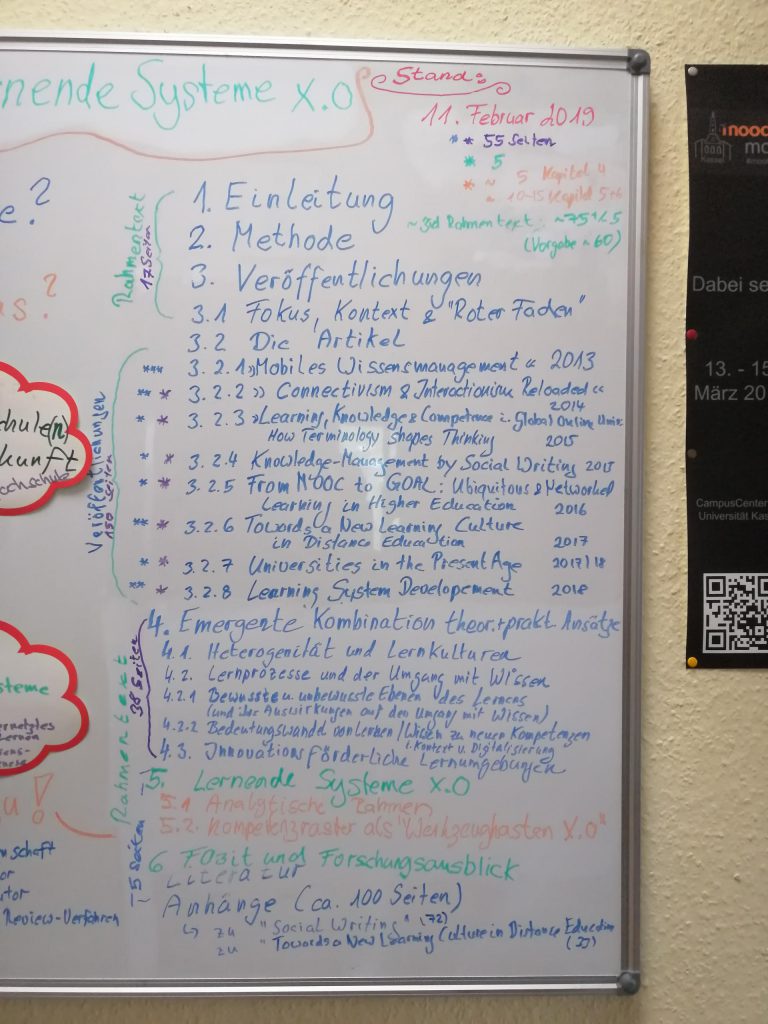 nende Systeme X.0
Stand:
11. Februar 2019
** 55 Seiten
* 5
* ~ 5 Kapitel 4
~ 10-15 Kapitel 5+6
~3d Rahmentext: ~75
(Vorgabe ~ 60)
e?
s?
Rahmentext
17 Seiten
1. Einleitung
2. Methode
3. Veröffentlichungen
3.1 Fokus, Kontext & "Roter Faden"
3.2 Die Artikel
Veröffentlichungen
150 Seiten
*** 3.2.1 "Mobiles Wissensmanagement" 2013
** * 3.2.2 "Connectivism & Interactionism Reloaded"
2014
* * 3.2.3 "Learning, Knowledge & Competence i. Global Online Univ.
How Terminology shapes Thinking 2015
* * 3.2.4 Knowledge-Management by Social Writing 2015
* * 3.2.5 From MOOC to GOAL: Ubiquitous & Networked
Learning in Higher Education 2016
** * 3.2.6 Towards a New Learning Culture
in Distance Education 2017
* * 3.2.7 Universities in the Present Age 2017/18
** * 3.2.8 Learning System Developement 2018
Rahmentext
38 Seiten
4. Emergente Kombination theor. + prakt. Ansätze
4.1. Heterogenität und Lernkulturen
4.2. Lernprozesse und der Umgang mit Wissen
4.2.1 Bewusste u. unbewusste Ebenen des Lernens
(und ihre Auswirkungen auf den Umgang mit Wissen)
4.2.2 Bedeutungswandel von Lernen/Wissen zu neuen Kompetenzen
i. Kontext v. Digitalisierung
4.3. Innovationsförderliche Lernumgebungen
5. Lernende Systeme X.0
5.1 Analytische Rahmen
5.2. Kompetenzraster als "Werkzeugkasten X.0"
5 Seiten
6 Fazit und Forschungsausblick
Literatur
Anhänge (ca. 100 Seiten)
↳ zu "Social Writing" (72)
zu "Towards a New Learning Culture in Distance Education
chule(n)
kunft
ochschule
steme
ernetztes
Lernen
u!
nschaft
or
utor
Review-Verfahren
mood
mo
Kassel
Dabei se
13. - 15
März 20
CampusCenter
Universität Kas